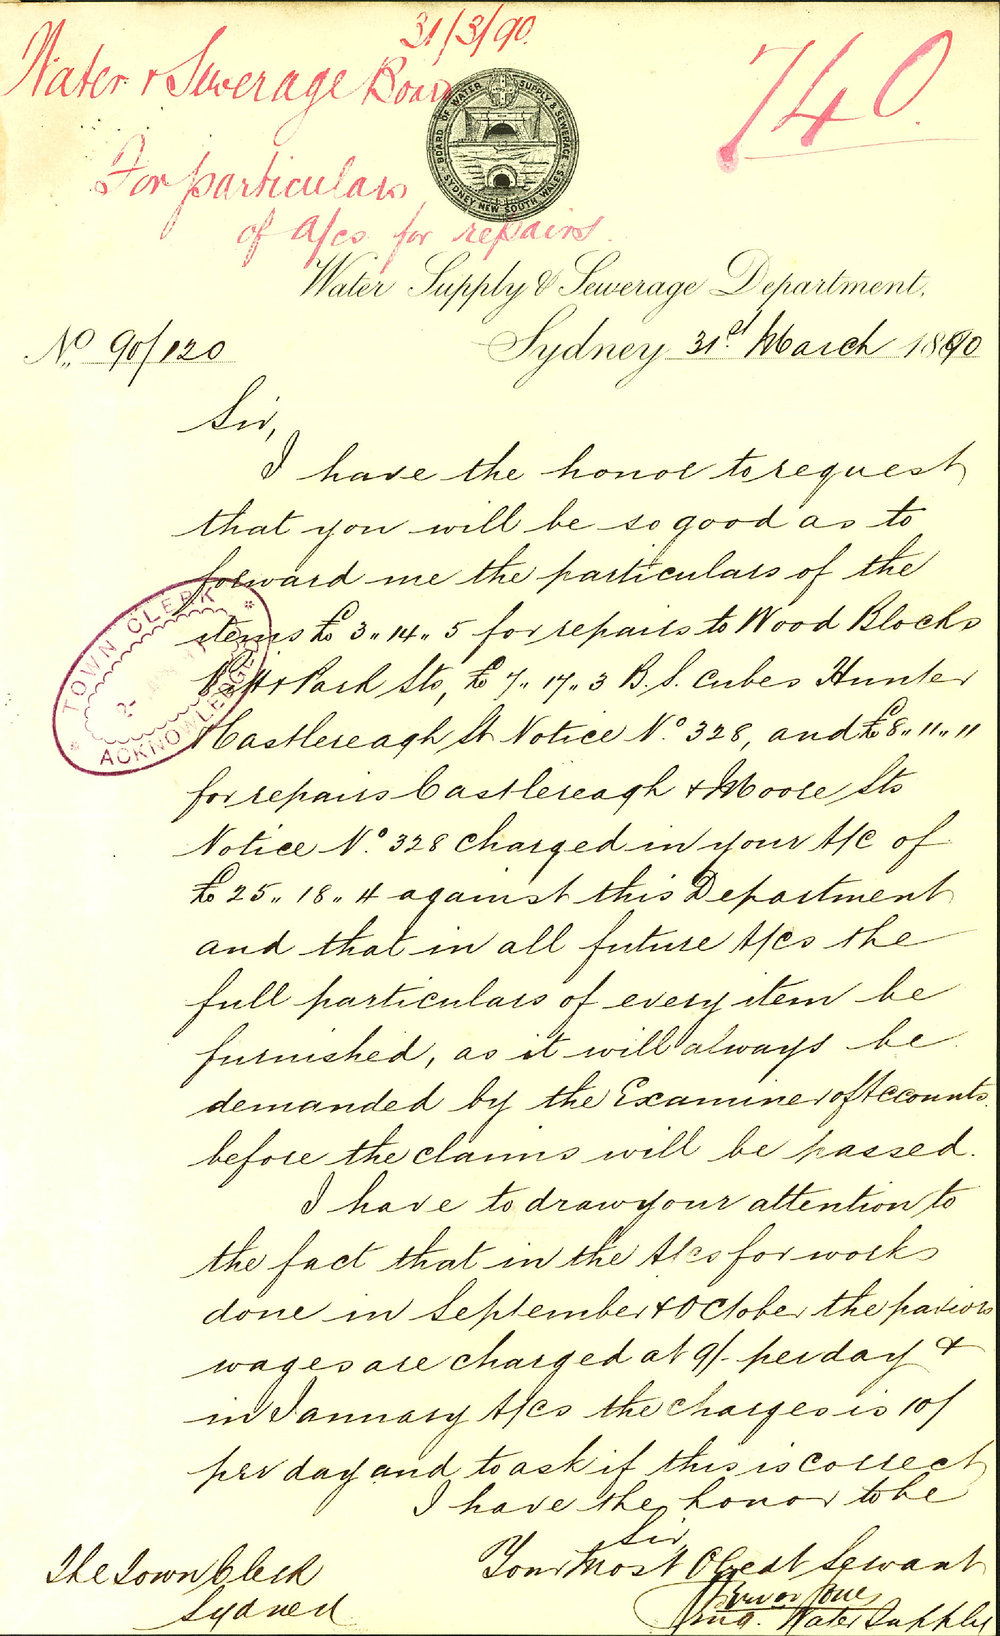 31/3/90.
Water & Sewerage Board
740.
For particulars
of a/cs for repairs.
BOARD OF WATER SUPPLY & SEWERAGE
SYDNEY NEW SOUTH WALES
Water Supply & Sewerage Department.
No. 90/120
Sydney 31st March 1890
Sir,
I have the honor to request
that you will be so good as to
forward me the particulars of the
items £3,,14,,5 for repairs to Wood Blocks
Pitt & Park Sts, £7,,17,,3 B.S. Cubes Hunter
Castlereagh St Notice No. 328, and £8,,11,,11
for repairs Castlereagh & Moore Sts
Notice No. 328 charged in your A/c of
£25,,18,,4 against this Department
and that in all future A/cs the
full particulars of every item be
furnished, as it will always be
demanded by the Examiner of Accounts
before the claims will be passed.
I have to draw your attention to
the fact that in the A/cs for work
done in September & October the paviors
wages are charged at 9/- per day &
in January A/cs the charges is 10/
per day and to ask if this is correct
I have the honor to be
Sir
Your Most Obedt Servant
Water Supply
The Town Clerk
Sydney
TOWN CLERK
ACKNOWLEDGED